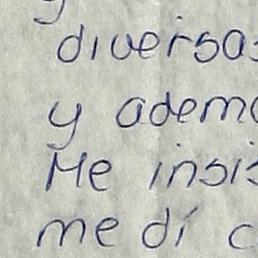 diversas
y ademá
Me insis
me dí c